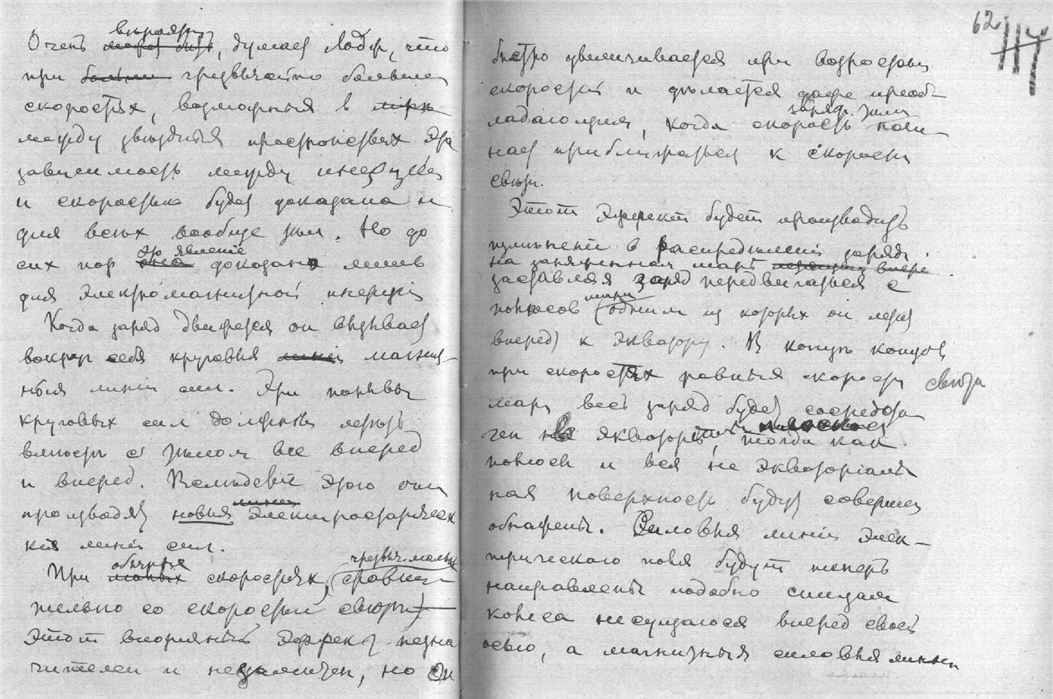 вѣроятн.
Очень может быть, думает Лодж, что
при больш чрезвычайно больших
скоростях, возможных в мiрѣ
между звѣздных пространствах эта
зависимость между инерцiей
и скоростью будет доказана и
для всѣх вообще тѣл. Но до
это явленiе
сих пор она доказано лишь
для электромагнитной инерцiи
Когда заряд движется он вызывает
вокруг себя круговыя линiи магнит-
ныя линiи сил. При
круговых сил должны
вмѣстѣ с тѣлом все вперед
и вперед. Вслѣдствiе этого они
линiи
производят новыя электростатичес
кiя линiи сил.
обычных чрезвыч. малых
При малых скоростях, (сравни-
тельно со скоростью свѣта)
этот вторичный эффект незна
чителен и незамѣтен, но он
62
117
быстро увеличивается при возростанiи
скорости и дѣлается даже преоб-
заряж. тѣла
ладающим, когда скорость начи-
нает приближаться к скорости
свѣта.
Этот эффект будет производить
измѣненiе в распредѣленiи заряда
на заряженном шарѣ
заставляя заряд передвигаться с
полюсов (одним из которых он летит
вперед) к экватору. В концѣ концов
при скоростях равных скорости свѣта
шара весь заряд будет сосредото
чен на экваторѣ, тогда как
полюсы и вся не экваторiаль
ная поверхность будут совершен
обнажены. Силовыя линiи элек-
трическаго поля будут теперь
направлены подобно спицам
колеса несущагося вперед своей
осью, а магнитныя силовыя линiи